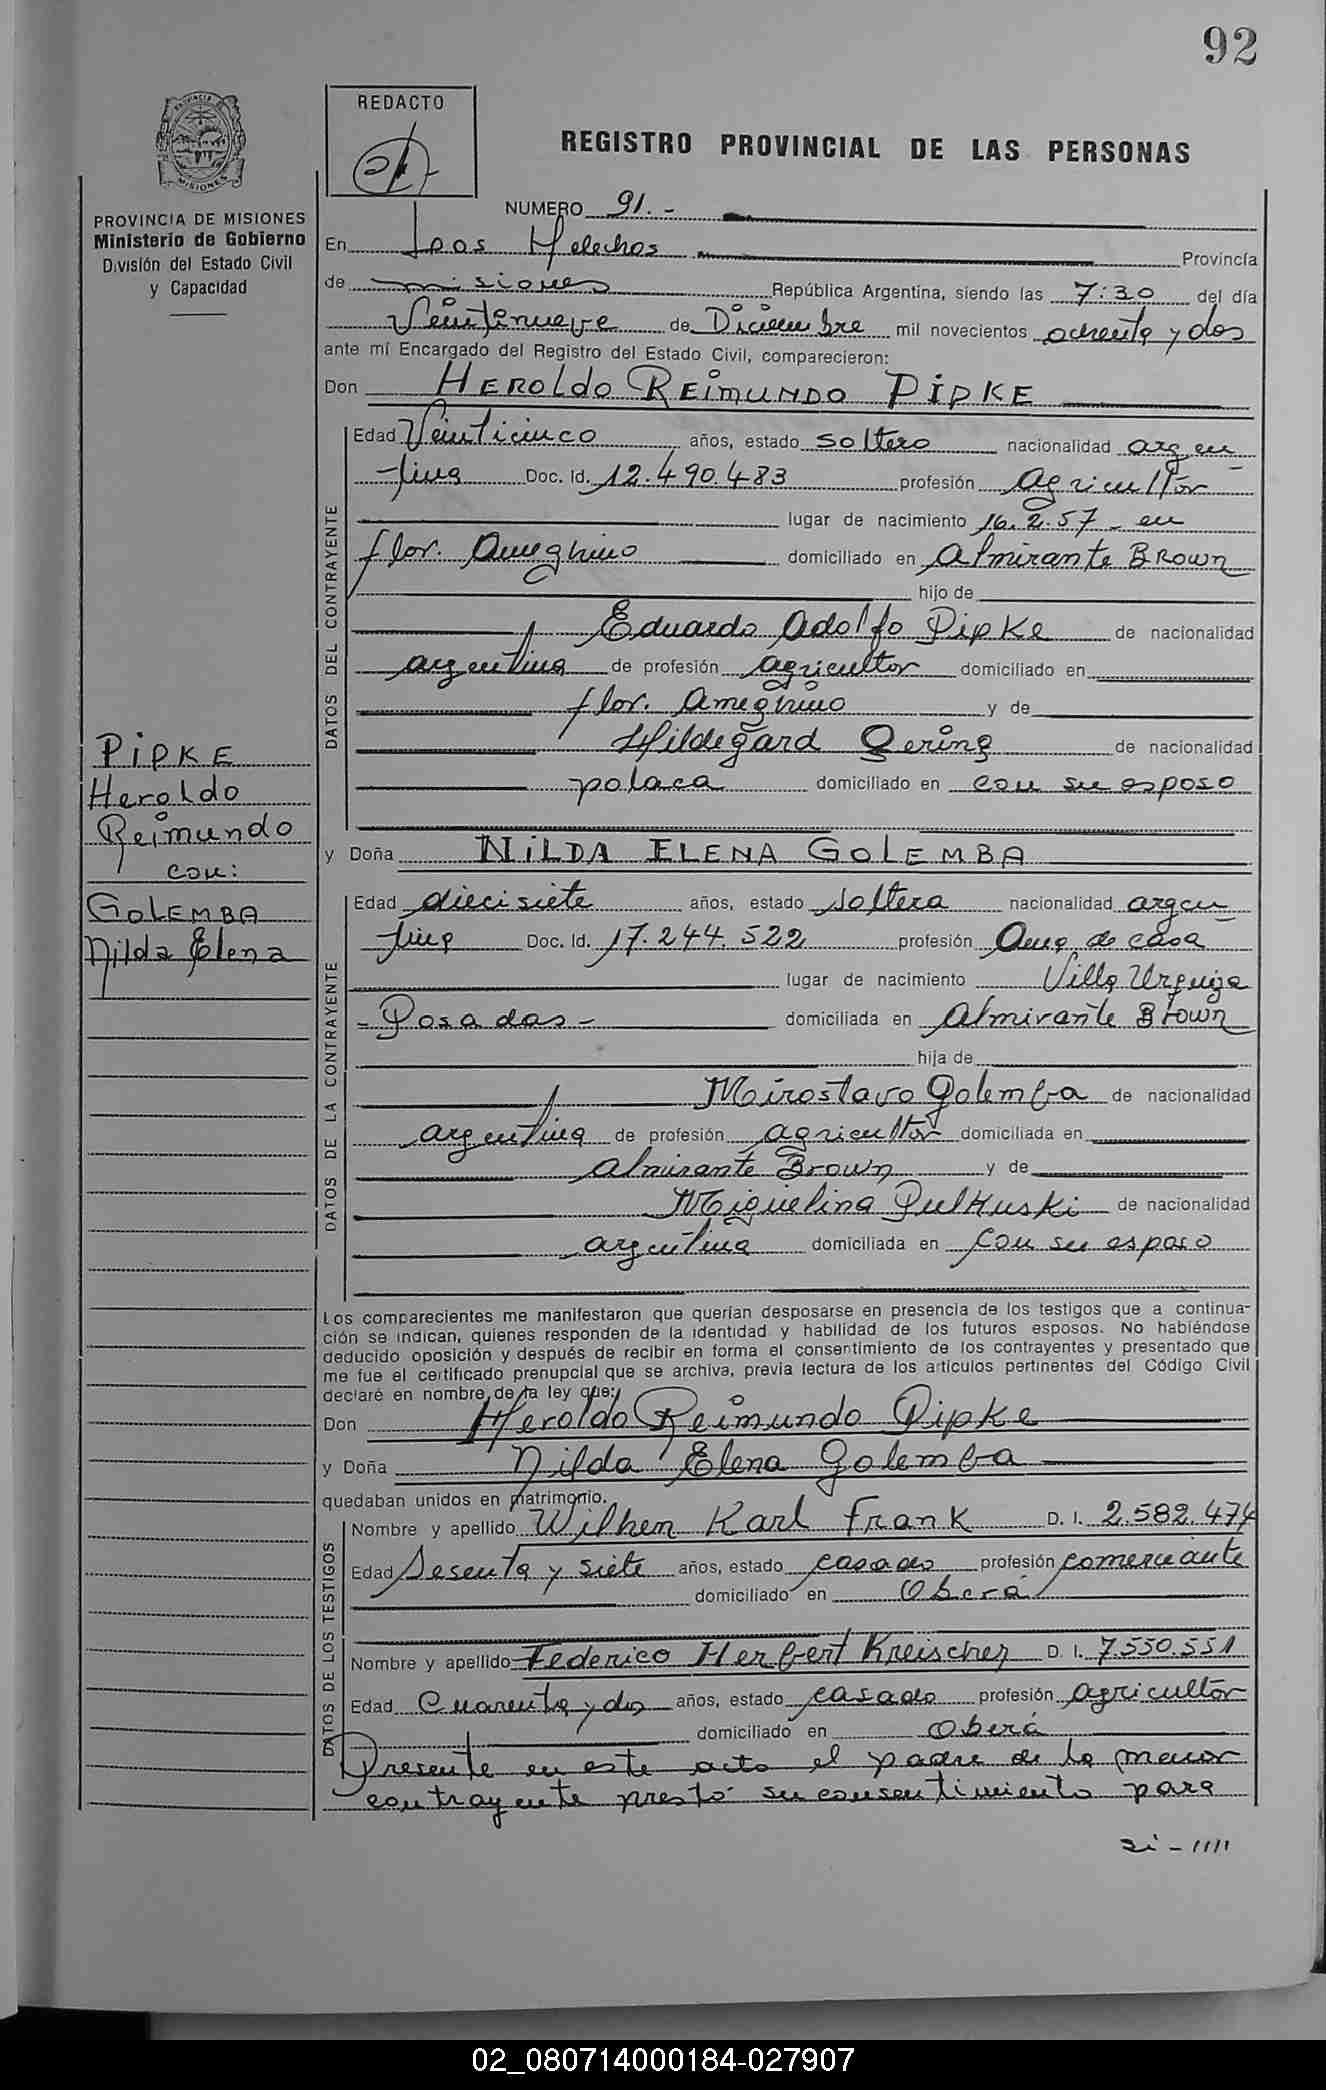 92
REDACTO
REGISTRO PROVINCIAL DE LAS PERSONAS
PROVINCIA DE MISIONES
Ministerio de Gobierno
División del Estado Civil
y Capacidad
NUMERO 91.-
En Leos Helechos Provincia
de Misiones República Argentina, siendo las 7:30 del día
Veintinueve de Diciembre mil novecientos ochenta y dos
ante mí Encargado del Registro del Estado Civil, comparecieron:
Don HEROLDO REIMUNDO PIPKE
DATOS DEL CONTRAYENTE
Edad Veinticinco años, estado soltero nacionalidad argen
tina Doc. Id. 12.490.483 profesión Agricultor
lugar de nacimiento 16.2.57 - en
flor. Ameghino domiciliado en Almirante Brown
hijo de
Eduardo Adolfo Pipke de nacionalidad
argentina de profesión agricultor domiciliado en
flor. Ameghino y de
Hildegard Gering de nacionalidad
polaca domiciliado en con su esposo
PIPKE
Heroldo
Reimundo
con:
GOLEMBA
Nilda Elena
y Doña NILDA ELENA GOLEMBA
DATOS DE LA CONTRAYENTE
Edad diecisiete años, estado soltera nacionalidad argen
tina Doc. Id. 17.244.522 profesión Ama de casa
lugar de nacimiento Villa Urquiza
- Posadas - domiciliada en Almirante Brown
hija de
Miroslavo Golemba de nacionalidad
argentina de profesión agricultor domiciliada en
Almirante Brown y de
Miguelina Pulkuski de nacionalidad
argentina domiciliada en con su esposo
Los comparecientes me manifestaron que querían desposarse en presencia de los testigos que a continua-
ción se indican, quienes responden de la identidad y habilidad de los futuros esposos. No habiéndose
deducido oposición y después de recibir en forma el consentimiento de los contrayentes y presentado que
me fue el certificado prenupcial que se archiva, previa lectura de los artículos pertinentes del Código Civil
declaré en nombre de la ley que:
Don Heroldo Reimundo Pipke
y Doña Nilda Elena Golemba
quedaban unidos en matrimonio.
DATOS DE LOS TESTIGOS
Nombre y apellido Wilhen Karl Frank D. I. 2.582.474
Edad Sesenta y siete años, estado casado profesión comerciante
domiciliado en Oberá
Nombre y apellido Federico Herbert Kreischer D. I. 7.550.551
Edad Cuarenta y dos años, estado casado profesión agricultor
domiciliado en Oberá
Presente en este acto el padre de la menor
contrayente prestó su consentimiento para
si - ////
02_080714000184-027907